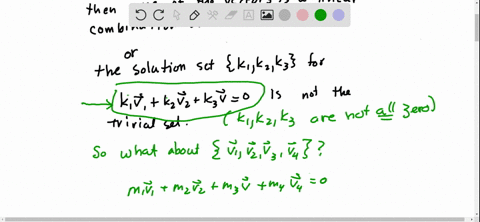 then of the vectors is a linear
combination
or
the solution set {k₁, k₂, k₃} for
k₁v⃗₁ + k₂v⃗₂ + k₃v⃗ = 0 is not the
trivial set. (k₁, k₂, k₃ are not all zero)
So what about {v⃗₁, v⃗₂, v⃗₃, v⃗₄}?
m₁v⃗₁ + m₂v⃗₂ + m₃v⃗ + m₄v⃗₄ = 0